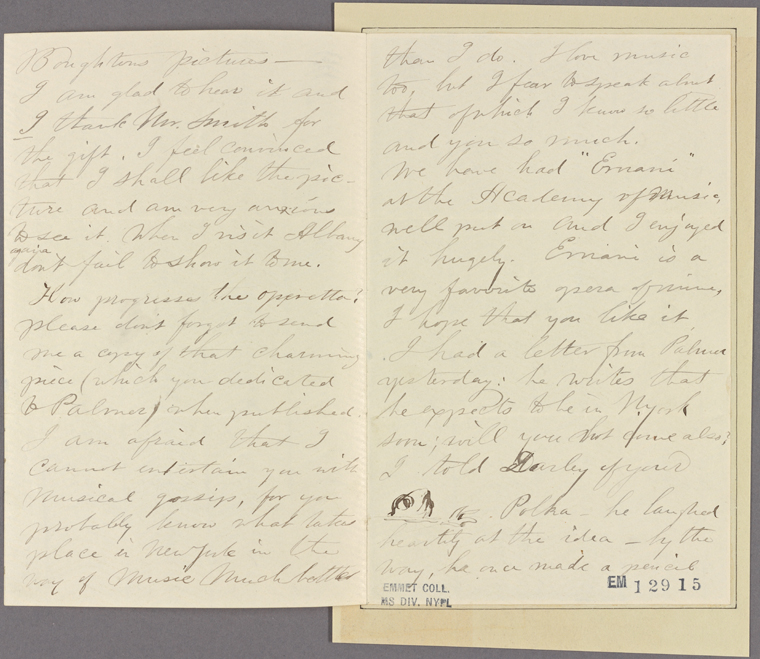 Boughtons pictures —
I am glad to hear it and
I thank Mr. Smith for
the gift. I feel convinced
that I shall like the pic-
ture and am very anxious
to see it. When I visit Albany
again
don't fail to show it to me.
How progresses the operetta?
please don't forget to send
me a copy of that charming
piece (which you dedicated
to Palmer) when published.
I am afraid that I
cannot entertain you with
musical gossip, for you
probably know what takes
place in New York in the
way of Music Much better
than I do. I love music
too, but I fear to speak about
that of which I know so little
and you so much.
We have had "Ernani"
at the Academy of Music,
well put on and I enjoyed
it hugely. Ernani is a
very favorite opera of mine,
I hope that you like it.
I had a letter from Palmer
yesterday: he writes that
he expects to be in N York
soon; will you not come also?
I told Darley of your
Polka – he laughed
heartily at the idea – by the
way, he once made a pencil
EMMET COLL.
MS DIV. NYPL
EM 12915